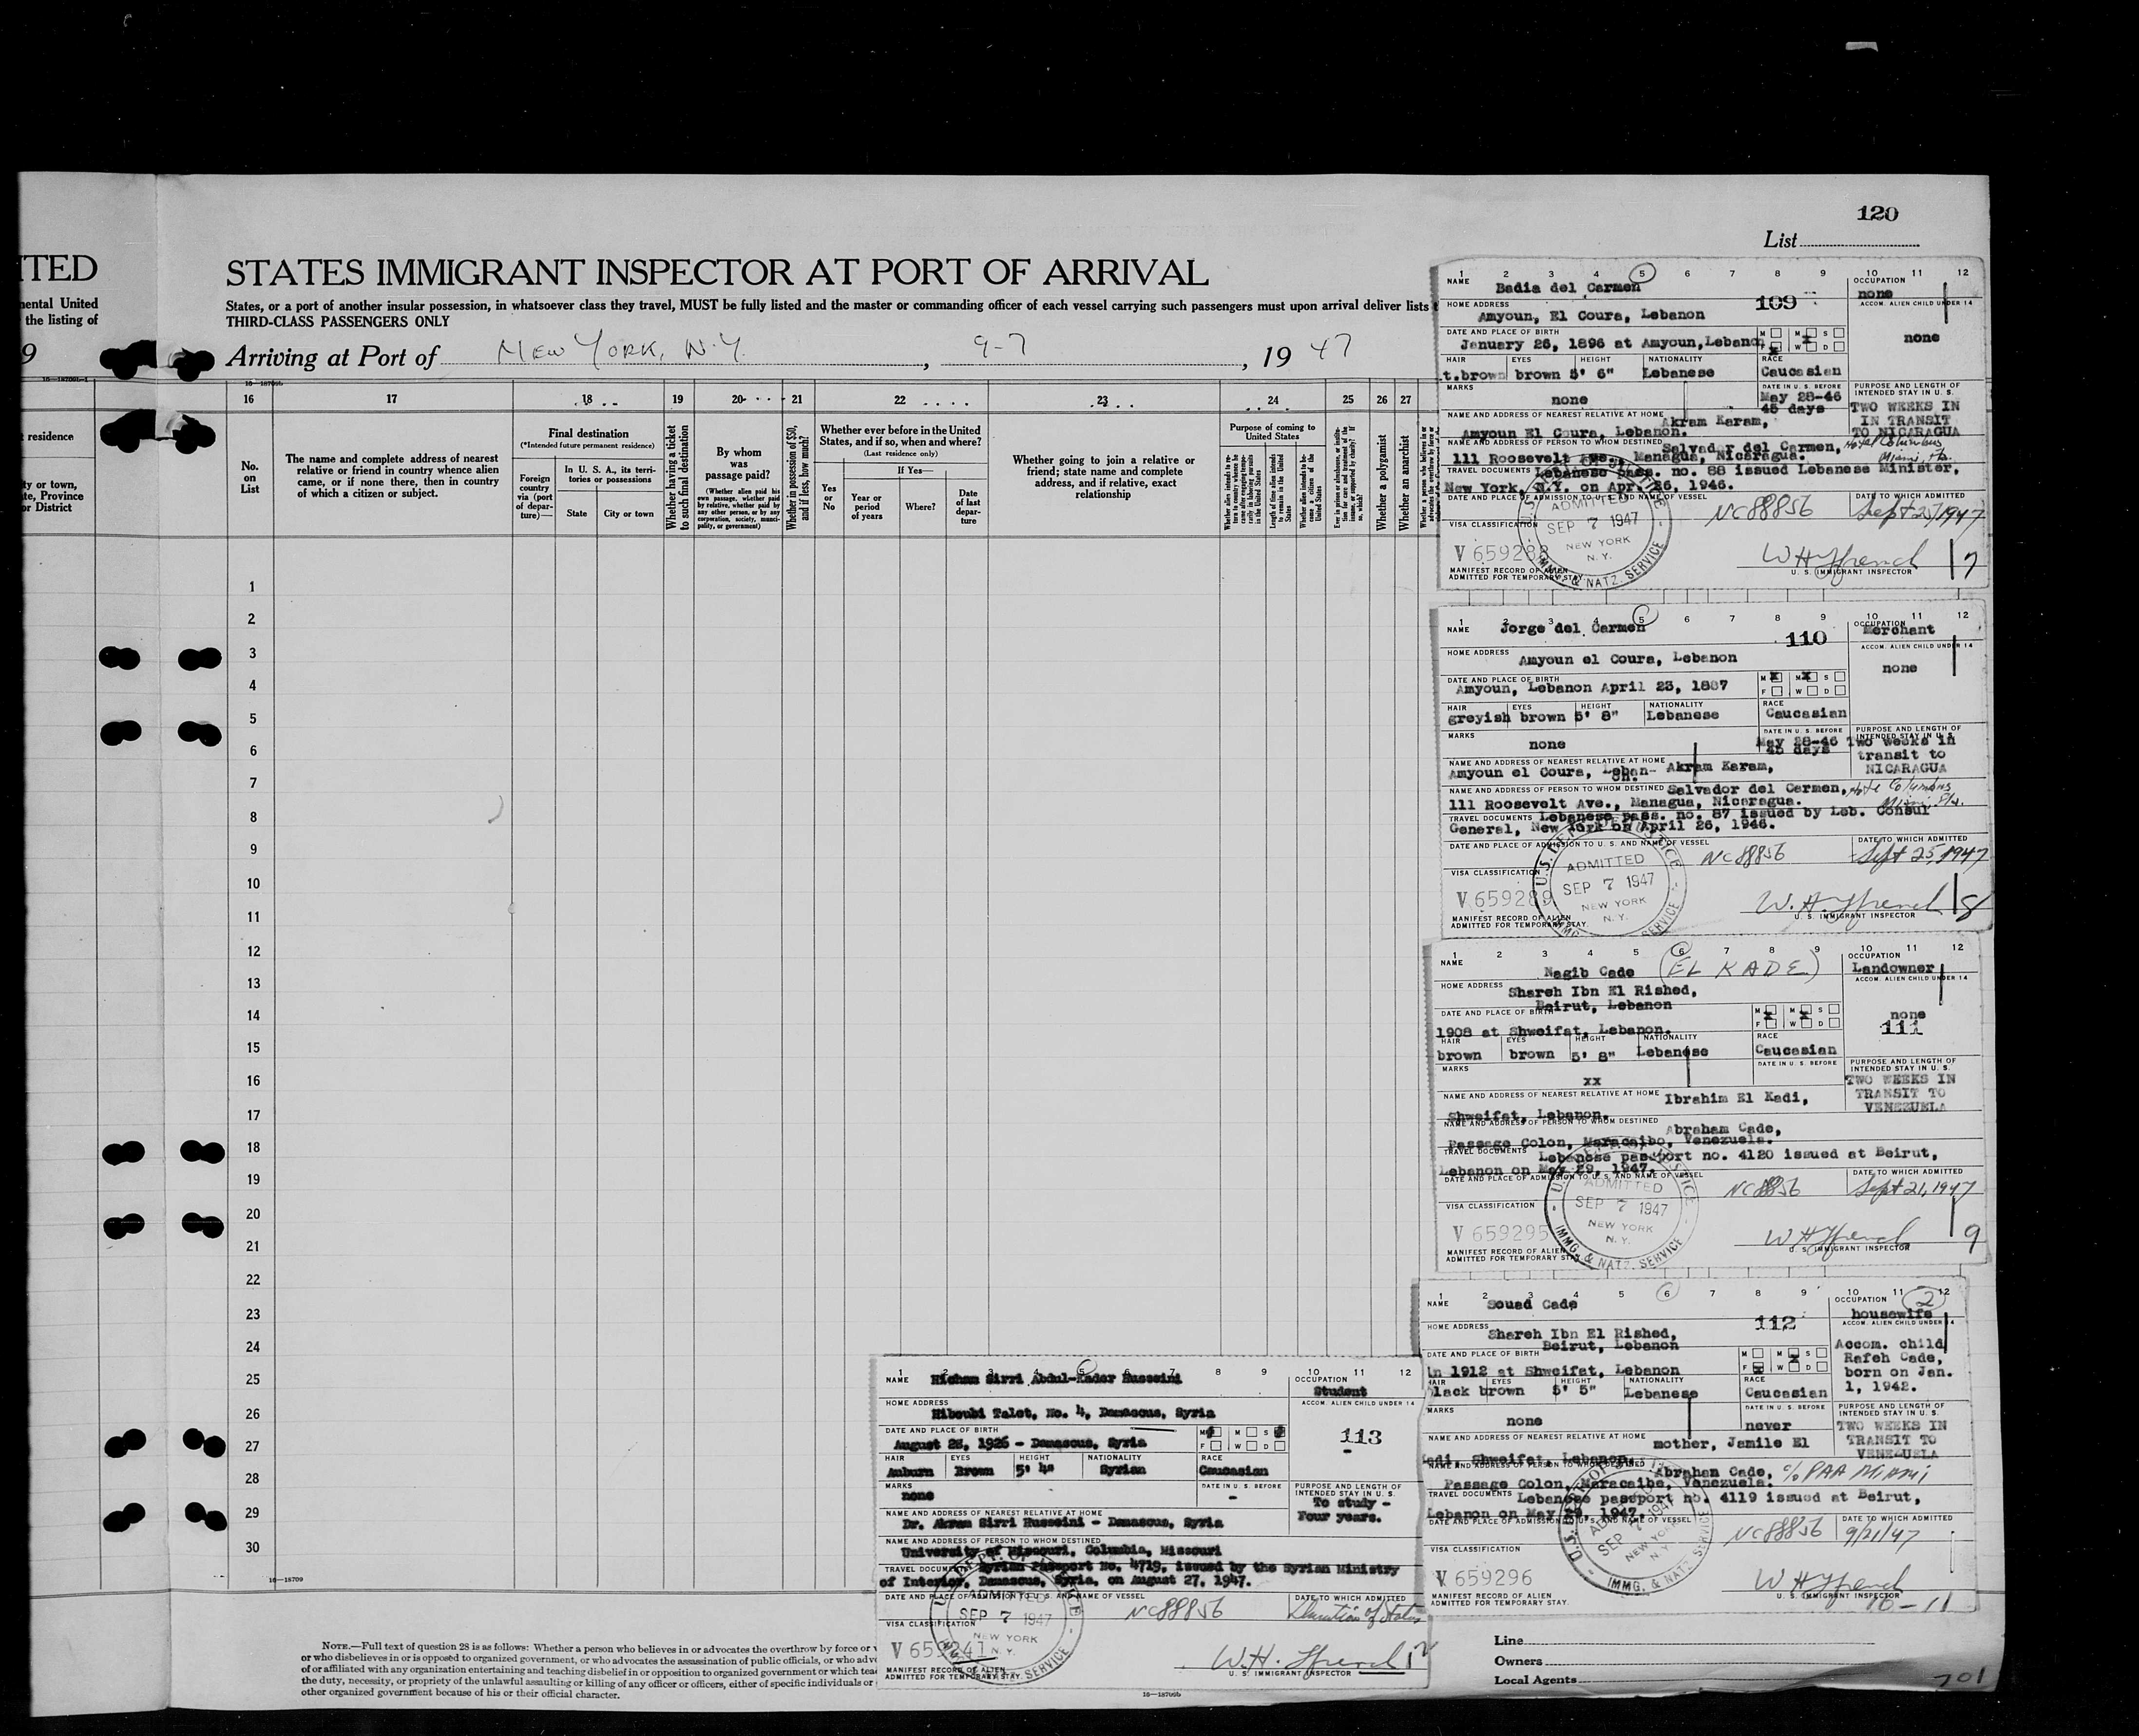 120
List
ITED
mental United
the listing of
9
16—18709b-1
residence
ty or town,
te, Province
or District
STATES IMMIGRANT INSPECTOR AT PORT OF ARRIVAL
States, or a port of another insular possession, in whatsoever class they travel, MUST be fully listed and the master or commanding officer of each vessel carrying such passengers must upon arrival deliver lists
THIRD-CLASS PASSENGERS ONLY
Arriving at Port of NEW YORK, N.Y. , 9-7 , 19 47
16—18709b
16 17 18 19 20 21 22 23 24 25 26 27
No. on List
The name and complete address of nearest
relative or friend in country whence alien
came, or if none there, then in country
of which a citizen or subject.
Final destination
(*Intended future permanent residence)
Foreign country via (port of departure)—
In U. S. A., its territories or possessions
State
City or town
Whether having a ticket to such final destination
By whom was passage paid?
(Whether alien paid his own passage, whether paid by relative, whether paid by any other person, or by any corporation, society, municipality, or government)
Whether in possession of $50, and if less, how much?
Whether ever before in the United States, and if so, when and where?
(Last residence only)
Yes or No
If Yes—
Year or period of years
Where?
Date of last departure
Whether going to join a relative or
friend; state name and complete
address, and if relative, exact
relationship
Purpose of coming to United States
Length of time alien intends to remain in the United States
Whether a polygamist
Whether an anarchist
1
2
3
4
5
6
7
8
9
10
11
12
13
14
15
16
17
18
19
20
21
22
23
24
25
26
27
28
29
30
16—18709
NOTE.—Full text of question 28 is as follows: Whether a person who believes in or advocates the overthrow by force or v
or who disbelieves in or is opposed to organized government, or who advocates the assassination of public officials, or who adve
of or affiliated with any organization entertaining and teaching disbelief in or opposition to organized government or which tea
the duty, necessity, or propriety of the unlawful assaulting or killing of any officer or officers, either of specific individuals or
other organized government because of his or their official character.
16—18709b
1 2 3 4 5 6 7 8 9 10 11 12
NAME Badia del Carmen
109
OCCUPATION none
HOME ADDRESS Amyoun, El Coura, Lebanon
ACCOM. ALIEN CHILD UNDER 14 none
DATE AND PLACE OF BIRTH
January 26, 1896 at Amyoun, Lebanon
M M S
F W D
HAIR EYES HEIGHT NATIONALITY RACE
t.brown brown 5' 6" Lebanese Caucasian
MARKS none
DATE IN U. S. BEFORE May 28-46 45 days
PURPOSE AND LENGTH OF
TWO WEEKS IN
IN TRANSIT
TO NICARAGUA
NAME AND ADDRESS OF NEAREST RELATIVE AT HOME Akram Karam,
Amyoun El Coura, Lebanon.
NAME AND ADDRESS OF PERSON TO WHOM DESTINED Salvador del Carmen, Hotel Columbus
111 Roosevelt Ave., Managua, Nicaragua. Miami, Fla.
TRAVEL DOCUMENTS Lebanese pass. no. 88 issued Lebanese Minister,
New York, N.Y. on April 26, 1946.
DATE AND PLACE OF ADMISSION TO U. S. AND NAME OF VESSEL
NC88856
DATE TO WHICH ADMITTED
Sept 25, 1947
VISA CLASSIFICATION
ADMITTED
SEP 7 1947
NEW YORK
N. Y.
IMMG. & NATZ. SERVICE
V 659288
W H Ffrench 7
MANIFEST RECORD OF ALIEN
ADMITTED FOR TEMPORARY STAY.
U. S. IMMIGRANT INSPECTOR
1 2 3 4 5 6 7 8 9 10 11 12
NAME Jorge del Carmen
110
OCCUPATION Merchant
HOME ADDRESS Amyoun el Coura, Lebanon
ACCOM. ALIEN CHILD UNDER 14 none
DATE AND PLACE OF BIRTH
Amyoun, Lebanon April 23, 1887
M M S
F W D
HAIR EYES HEIGHT NATIONALITY RACE
greyish brown 5' 8" Lebanese Caucasian
MARKS none
DATE IN U. S. BEFORE May 28-46 45 days
PURPOSE AND LENGTH OF INTENDED STAY IN U. S.
Two weeks in
transit to
NICARAGUA
NAME AND ADDRESS OF NEAREST RELATIVE AT HOME
Amyoun el Coura, Leban- on. Akram Karam,
NAME AND ADDRESS OF PERSON TO WHOM DESTINED Salvador del Carmen, Hotel Columbus
111 Roosevelt Ave., Managua, Nicaragua. Miami Fla.
TRAVEL DOCUMENTS Lebanese pass. no. 87 issued by Leb. Consul
General, New York on April 26, 1946.
DATE AND PLACE OF ADMISSION TO U. S. AND NAME OF VESSEL
NC88856
DATE TO WHICH ADMITTED
Sept 25, 1947
VISA CLASSIFICATION
ADMITTED
SEP 7 1947
NEW YORK
N. Y.
V 659289
W. H. Ffrench 8
MANIFEST RECORD OF ALIEN
ADMITTED FOR TEMPORARY STAY.
U. S. IMMIGRANT INSPECTOR
1 2 3 4 5 6 7 8 9 10 11 12
NAME Nagib Cade (EL KADE)
OCCUPATION Landowner
HOME ADDRESS Shareh Ibn El Rished,
Beirut, Lebanon
ACCOM. ALIEN CHILD UNDER 14 none
111
DATE AND PLACE OF BIRTH
1908 at Shweifat, Lebanon.
M M S
F W D
HAIR EYES HEIGHT NATIONALITY RACE
brown brown 5' 8" Lebanese Caucasian
MARKS xx
DATE IN U. S. BEFORE
PURPOSE AND LENGTH OF INTENDED STAY IN U. S.
TWO WEEKS IN
TRANSIT TO
VENEZUELA
NAME AND ADDRESS OF NEAREST RELATIVE AT HOME Ibrahim El Kadi,
Shweifat, Lebanon.
NAME AND ADDRESS OF PERSON TO WHOM DESTINED Abraham Cade,
Passage Colon, Maracaibo, Venezuela.
TRAVEL DOCUMENTS Lebanese passport no. 4120 issued at Beirut,
Lebanon on May 29, 1947.
DATE AND PLACE OF ADMISSION TO U. S. AND NAME OF VESSEL
NC88856
DATE TO WHICH ADMITTED
Sept 21, 1947
VISA CLASSIFICATION
ADMITTED
SEP 7 1947
NEW YORK
N. Y.
IMMG. & NATZ. SERVICE
V 659295
W H Ffrench 9
MANIFEST RECORD OF ALIEN
ADMITTED FOR TEMPORARY STAY
U. S. IMMIGRANT INSPECTOR
1 2 3 4 5 6 7 8 9 10 11 12
NAME Souad Cade
112
OCCUPATION housewife
2
HOME ADDRESS Shareh Ibn El Rished,
Beirut, Lebanon
ACCOM. ALIEN CHILD UNDER 14
Accom. child
Rafeh Cade,
born on Jan.
1, 1942.
DATE AND PLACE OF BIRTH
in 1912 at Shweifat, Lebanon
M M S
F W D
HAIR EYES HEIGHT NATIONALITY RACE
black brown 5' 5" Lebanese Caucasian
MARKS none
DATE IN U. S. BEFORE never
PURPOSE AND LENGTH OF INTENDED STAY IN U. S.
TWO WEEKS IN
TRANSIT TO
VENEZUELA
NAME AND ADDRESS OF NEAREST RELATIVE AT HOME mother, Jamile El
adi, Shweifat, Lebanon.
NAME AND ADDRESS OF PERSON TO WHOM DESTINED Abraham Cade, % PAA Miami
Passage Colon, Maracaibo, Venezuela.
TRAVEL DOCUMENTS Lebanese passport no. 4119 issued at Beirut,
Lebanon on May 29, 1947.
DATE AND PLACE OF ADMISSION TO U. S. AND NAME OF VESSEL
NC88856
DATE TO WHICH ADMITTED
9/21/47
VISA CLASSIFICATION
SEP 7 1947
NEW YORK
N. Y.
IMMG. & NATZ. SERVICE
V 659296
W H Ffrench
10-11
MANIFEST RECORD OF ALIEN
ADMITTED FOR TEMPORARY STAY.
U. S. IMMIGRANT INSPECTOR
1 2 3 4 5 6 7 8 9 10 11 12
NAME Hicham Sirri Abdul-Kader Husseini
OCCUPATION Student
HOME ADDRESS Hiboubi Talet, No. 4, Damascus, Syria
ACCOM. ALIEN CHILD UNDER 14
113
-
DATE AND PLACE OF BIRTH
August 23, 1926 - Damascus, Syria
M M S
F W D
HAIR EYES HEIGHT NATIONALITY RACE
Auburn Brown 5' 4" Syrian Caucasian
MARKS none
DATE IN U. S. BEFORE -
PURPOSE AND LENGTH OF INTENDED STAY IN U. S.
To study -
Four years.
NAME AND ADDRESS OF NEAREST RELATIVE AT HOME
Dr. Akram Sirri Husseini - Damascus, Syria
NAME AND ADDRESS OF PERSON TO WHOM DESTINED
University of Missouri, Columbia, Missouri
TRAVEL DOCUMENTS Syrian Passport No. 4719, issued by the Syrian Ministry
of Interior, Damascus, Syria, on August 27, 1947.
DATE AND PLACE OF ADMISSION TO U. S. AND NAME OF VESSEL
NC88856
DATE TO WHICH ADMITTED
Duration of Status
VISA CLASSIFICATION
ADMITTED
SEP 7 1947
NEW YORK
N. Y.
V 659241
W. H. Ffrench 12
MANIFEST RECORD OF ALIEN
ADMITTED FOR TEMPORARY STAY.
U. S. IMMIGRANT INSPECTOR
Line
Owners
Local Agents
701